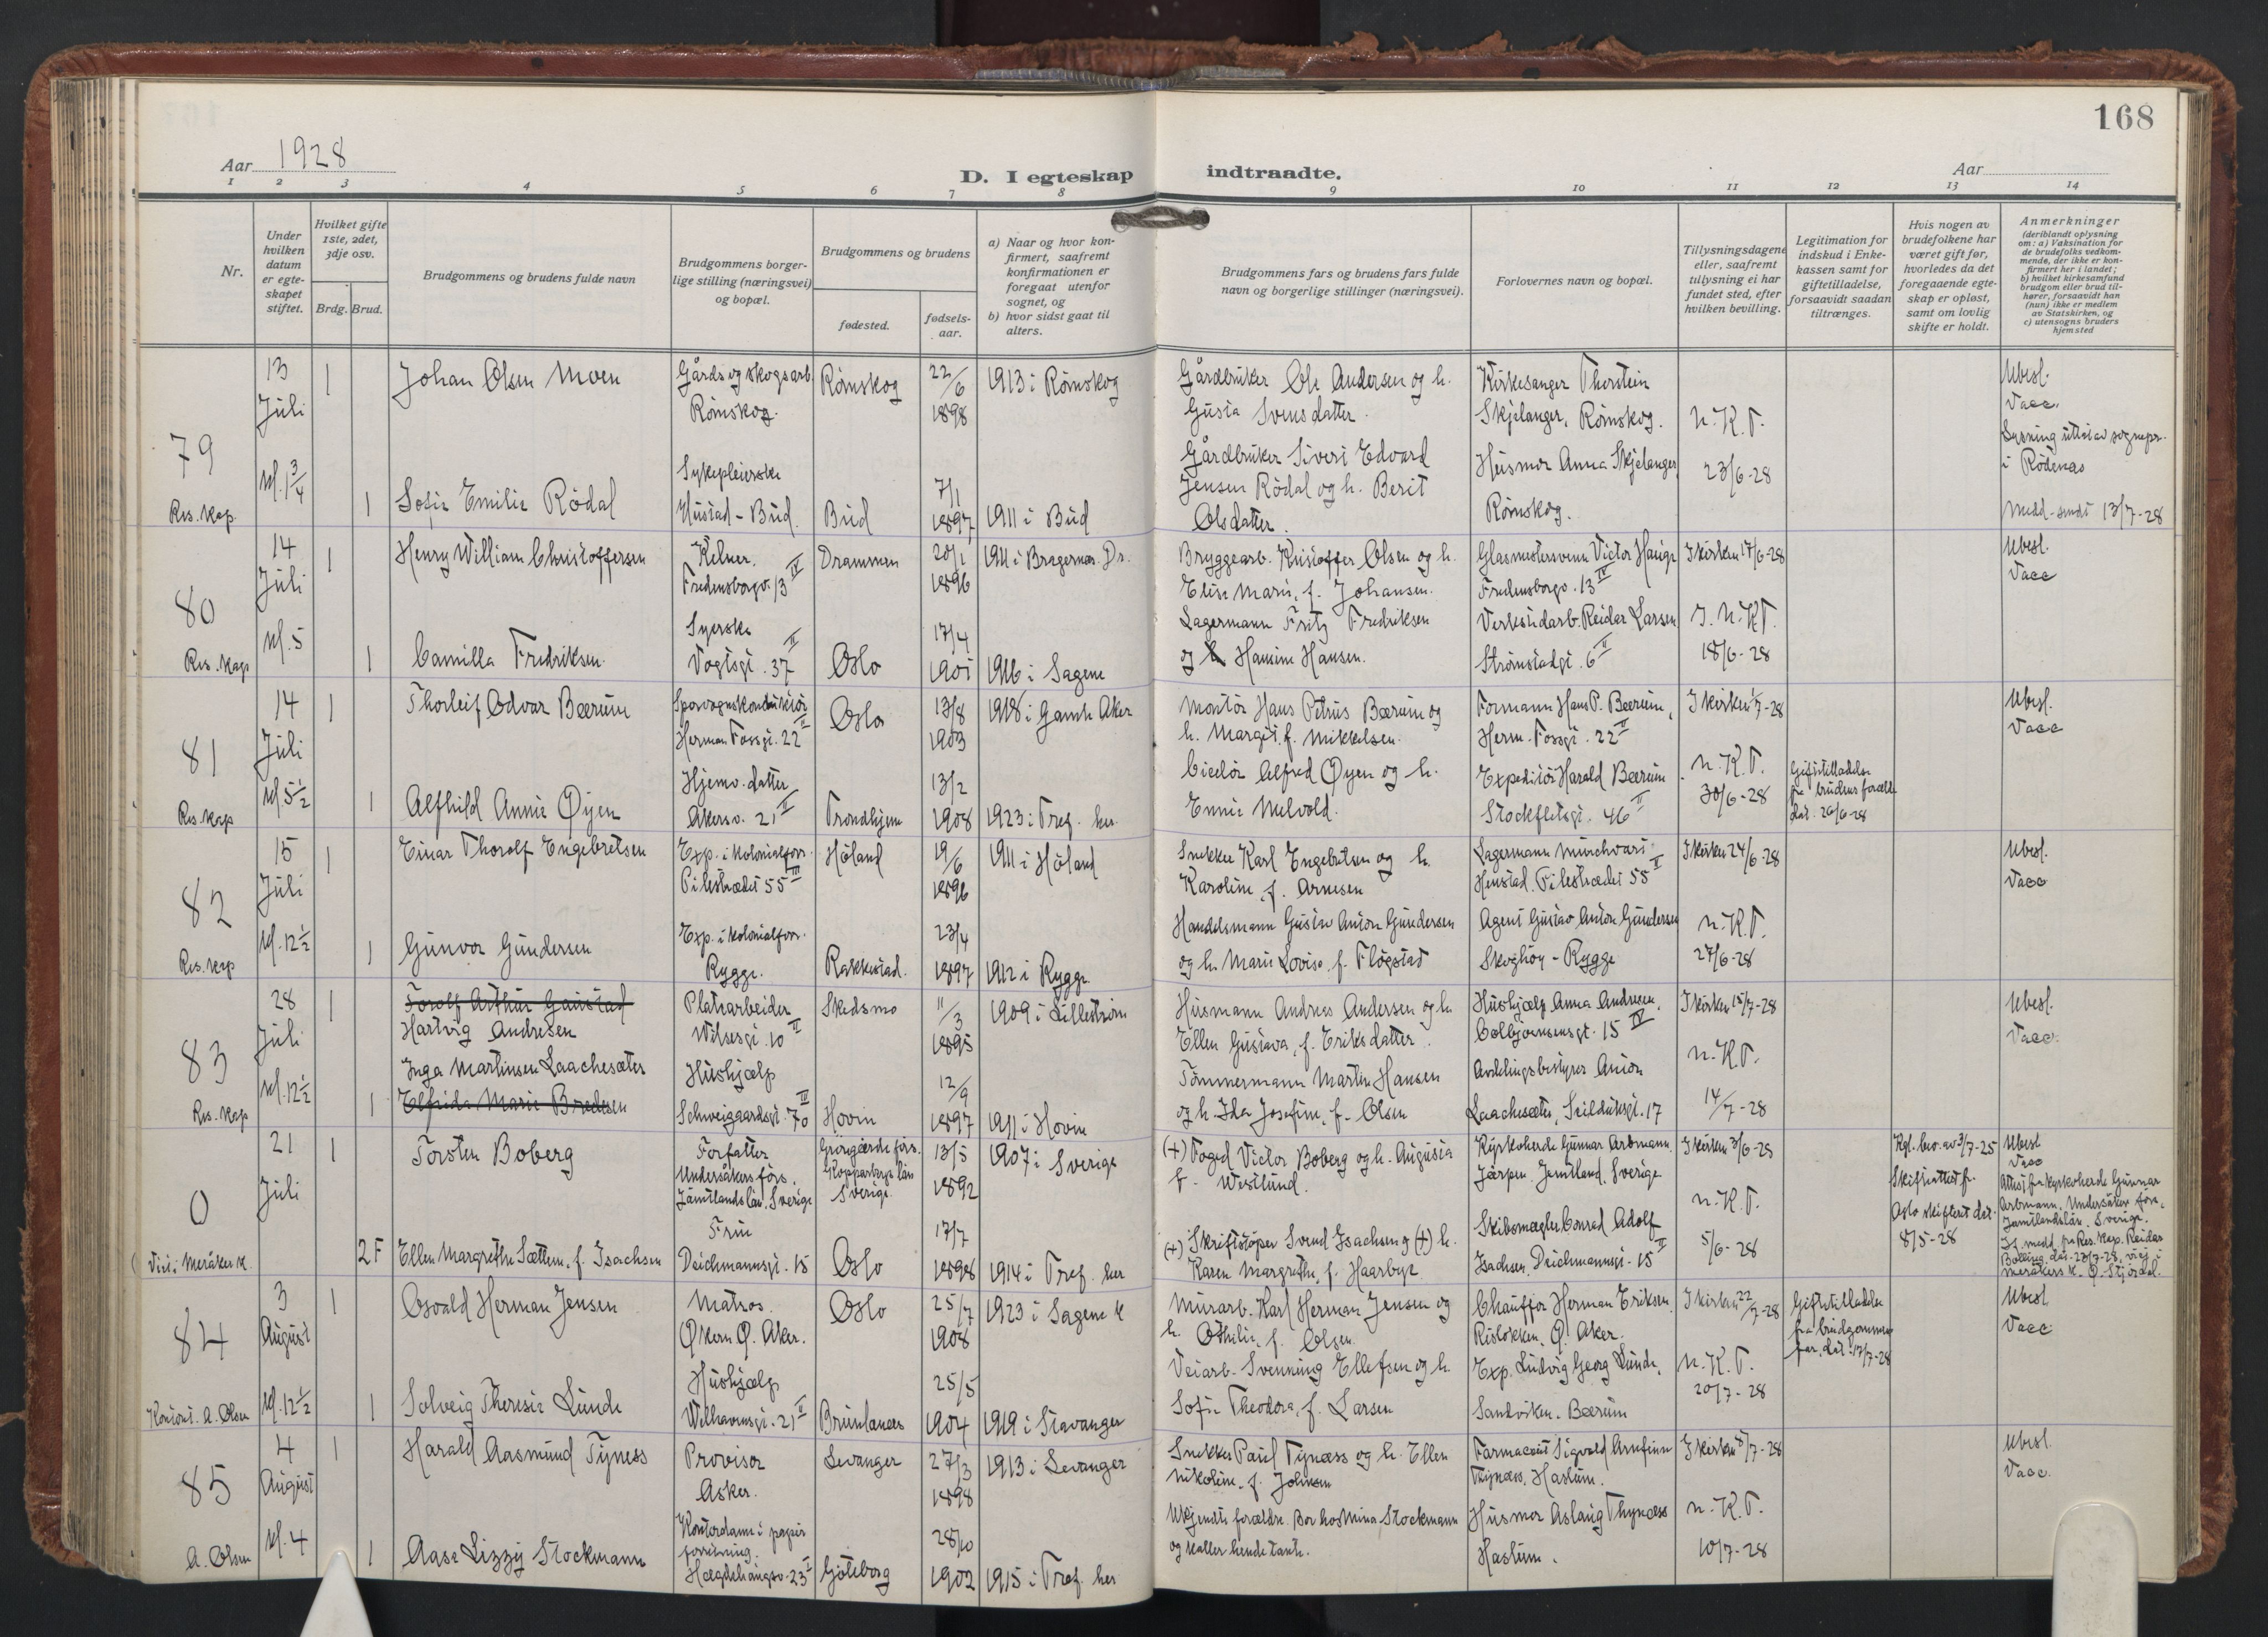 168
Aar 1928
D. I egteskap indtraadte.
Aar
1 2 3 4 5 6 7 8 9 10 11 12 13 14
Nr.
Under hvilken datum er egteskapet stiftet.
Hvilket gifte 1ste, 2det, 3dje osv.
Brdg. Brud.
Brudgommens og brudens fulde navn
Brudgommens borgerlige stilling (næringsvei) og bopæl.
Brudgommens og brudens
fødested.
fødselsaar.
a) Naar og hvor konfirmert, saafremt konfirmationen er foregaat utenfor sognet, og
b) hvor sidst gaat til alters.
Brudgommens fars og brudens fars fulde navn og borgerlige stillinger (næringsvei).
Forlovernes navn og bopæl.
Tillysningsdagene eller, saafremt tillysning ei har fundet sted, efter hvilken bevilling.
Legitimation for indskud i Enkekassen samt for giftetilladelse, forsaavidt saadan tiltrænges.
Hvis nogen av brudefolkene har været gift før, hvorledes da det foregaaende egteskap er opløst, samt om lovlig skifte er holdt.
Anmerkninger
(deriblandt oplysning om: a) Vaksination for de brudefolks vedkommende, der ikke er konfirmert her i landet; b) hvilket kirkesamfund brudgom eller brud tilhører, forsaavidt han (hun) ikke er medlem av Statskirken, og c) utensogns bruders hjemsted
79
13 Juli kl. 1 3/4
Res. kap.
1
Johan Olsen Moen
Gårds og skogsarb.
Rømskog
Rømskog
22/6 1898
1913 i Rømskog
Gårdbruker Ole Andersen og h.
Gusta Svensdatter.
Kirkesanger Thorstein
Skjelanger, Rømskog.
n. K. T.
23/6-28
Ubesl.
Vacc.
Lysning utført av sognepr.
i Rødenes
Medd. sendt 13/7-28
1
Sofie Emilie Rödal
Sykepleierske
Hustad - Bud.
Bud
7/1 1897
1911 i Bud
Gårdbruker Sivert Edvard
Jensen Rödal og h. Berit
Olsdatter.
Husmor Anna Skjelanger
Rømskog.
80
14 Juli kl. 5
Res. kap
1
Henry William Christoffersen
Kelner.
Fredensborgv. 13 IV
Drammen
20/1 1896
1911 i Bragernes. Dr.
Bryggearb. Kristoffer Olsen og h.
Elise Marie, f. Johansen.
Glasmestersvenn Victor Hauge
Fredensborgv. 13 IV
I kirken 17/6-28
I. n. K. T.
18/6-28
Ubesl.
Vacc
1
Camilla Fredriksen.
Syerske
Vogtsgt. 37 II
Oslo
17/4 1901
1916 i Sagene
Lagermann Fritz Fredriksen
og h Hansine Hansen.
Verkstedarb. Reidar Larsen
Strømstadgt. 6 II
81
14 Juli kl. 5 1/2
Res. kap
1
Thorleif Odvar Bærum
Sporvognskonduktør
Herman Fossgt. 22 II
Oslo
13/8 1903
1918 i Gamle Aker
Montør Hans Petrus Bærum og
h. Margit, f. Mikkelsen.
Formann Hans P. Bærum,
Herm. Fossgt. 22 II
I kirken 1/7-28
n. K. T.
30/6-28
Giftetilladelse
fra brudens foreldre
dat. 26/6-28
Ubesl.
Vacc
1
Alfhild Annie Øyen
Hjemv. datter
Akersv. 21 II
Trondhjem
13/2 1908
1923 i Tref. her.
Ciselør Alfred Øyen og h.
Ennie Melvold.
Expeditør Harald Bærum
Stockfletsgt. 46 II
82
15 Juli kl. 12 1/2
Res. kap
1
Einar Thorolf Engebretsen
Exp. i kolonialforr.
Pilestrædet 55 III
Höland
19/6 1896
1911 i Höland
Snekker Karl Engebretsen og h.
Karoline, f. Arnesen
Henstad. Pilestrædet 55 II
I kirken 24/6-28
n. K. T.
27/6-28
Ubesl.
Vacc
1
Gunvor Gundersen
Exp. i kolonialforr.
Rygge.
Rakkestad.
23/4 1897
1912 i Rygge
Handelsmann Gustav Anton Gundersen
og h. Marie Lovise, f. Fløgstad
Agent Gustav Anton Gundersen
Skoghöy - Rygge
83
28 Juli kl. 12 1/2
Res. kap
1
Torolf Arthur Gaustad
Hartvig Andresen
Platearbeider
Wilsesgt. 10 II
Skedsmo
11/3 1895
1909 i Lilleström
Husmann Andreas Andersen og h.
Ellen Gustava, f. Eriksdatter.
Hushjælp Anna Andresen.
Colbjørnsensgt. 15 IV
I kirken 15/7-28
n. K. T.
14/7-28
Ubesl.
Vacc.
1
Inga Martinsen Laachesæter
Elfrida Marie Bredesen
Hushjælp
Schweigaardsgt. 70 III
Hovin
12/9 1897
1911 i Hovin
Tömmermann Martin Hansen
og h. Ida Josefine, f. Olsen
Avdelingsbestyrer Anton
Laachesæter, Silduksgt. 17
0
21 Juli
Viet i Meråker k.
1
Torsten Boberg
Forfatter
Undersåkers förs.
Jämtlands län, Sverige
Kopparbergs län
Sverige.
13/5 1892
1907 i Sverige
(+) Foged Victor Boberg og h. Augusta
f. Westlund.
Kyrkoherde Gunnar Arbmann.
Järpen. Jemtland. Sverige
I kirken 3/6-28
n. K. T.
5/6-28
Kgl. bev. av 3/7-25
Skifteattest fr.
Oslo skifterett dat.
8/5-28
Ubesl
Vacc
Attest fra Kyrkoherde Gunnar
Arbmann, Undersåker förs.,
Jämtlandslän. Sverige.
2 F
Ellen Margrethe Sættem, f. Isachsen
Frue
Deichmannsgt. 15
Oslo
17/7 1898
1914 i Tref. her
(+) Skriftstöper Svend Isachsen og (+) h.
Karen Margrethe, f. Haarbye
Skibsmægler Conrad Adolf
Isachsen, Deichmannsgt. 15 II
If. medd. fra Res. kap. Reidar
Bolling, dat. 23/7-28, viet i
Meråkers k. Ø. Stjørdal.
84
3 August kl. 12 1/2
Konst. A. Olsen
1
Osvald Herman Jensen
Matros.
Økern Ø. Aker.
Oslo
25/7 1908
1923 i Sagene k
Murarb. Karl Herman Jensen og
h. Othilie, f. Olsen.
Chauffør Herman Eriksen,
Risløkken, Ø. Aker.
I kirken 22/7-28
n. K. T.
20/7-28
Giftetilladelse
fra brudgommens
far, dat. 17/7-28
Ubesl.
Vacc
1
Solveig Theresie Lunde
Hushjælp
Welhavensgt. 21 II
Brunlanes
25/5 1904
1919 i Stavanger
Veiarb. Svenning Ellefsen og h.
Sofie Theodora, f. Larsen
Exp. Ludvig Georg Lunde,
Sandviken. Bærum
85
4 August kl. 4
A. Olsen
1
Harald Aasmund Tyness
Provisor
Asker.
Levanger
27/3 1898
1913 i Levanger
Snekker Paul Tynæss og h. Ellen
Nikoline, f. Johnsen
Farmaceut Sigvald Arnfinn
Thynæss, Haslum.
I kirken 8/7-28
n. K. T.
10/7-28
Ubesl.
Vacc.
1
Aase Lizzy Stockmann
Kontordame i papir
forretning.
Hægdehaugsv. 23 I
Göteborg
28/10 1902
1915 i Tref. her
Ukjendte forældre. Bor hos Mina Stockmann
og kaller hende tante.
Husmor Aslaug Thynæss
Haslum.